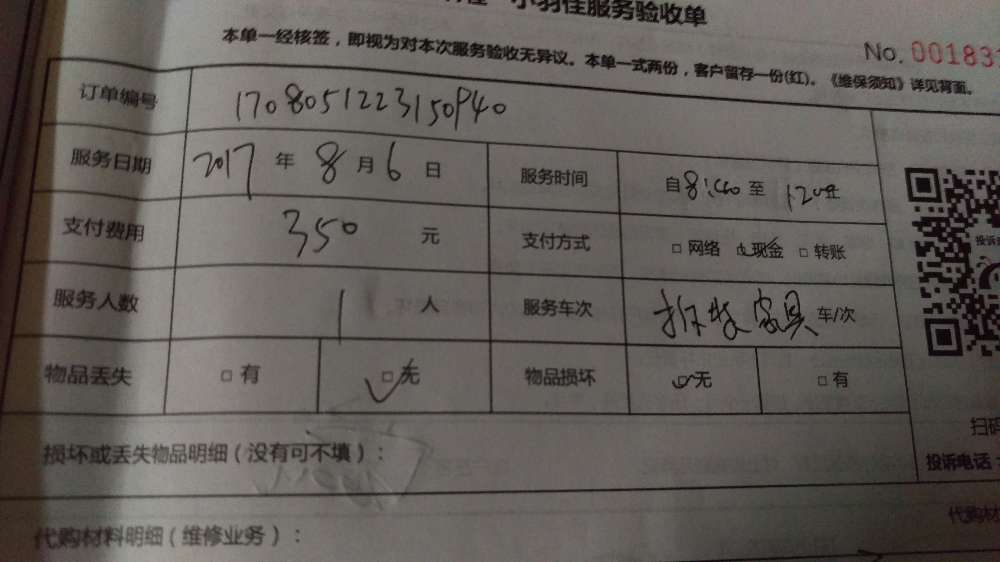 小羽佳服务验收单
本单一经核签，即视为对本次服务验收无异议。本单一式两份，客户留存一份(红)。《维保须知》详见背面。
No. 001831
订单编号 1708051223150940
服务日期 2017 年 8 月 6 日 服务时间 自8:00 至 12:00止
支付费用 350 元 支付方式 □ 网络 ☑ 现金 □ 转账
服务人数 1 人 服务车次 拆装家具 车/次
物品丢失 □ 有 ☑ 无 物品损坏 ☑ 无 □ 有
损坏或丢失物品明细（没有可不填）：
扫码
投诉电话
代购材料明细（维修业务）：
代购材